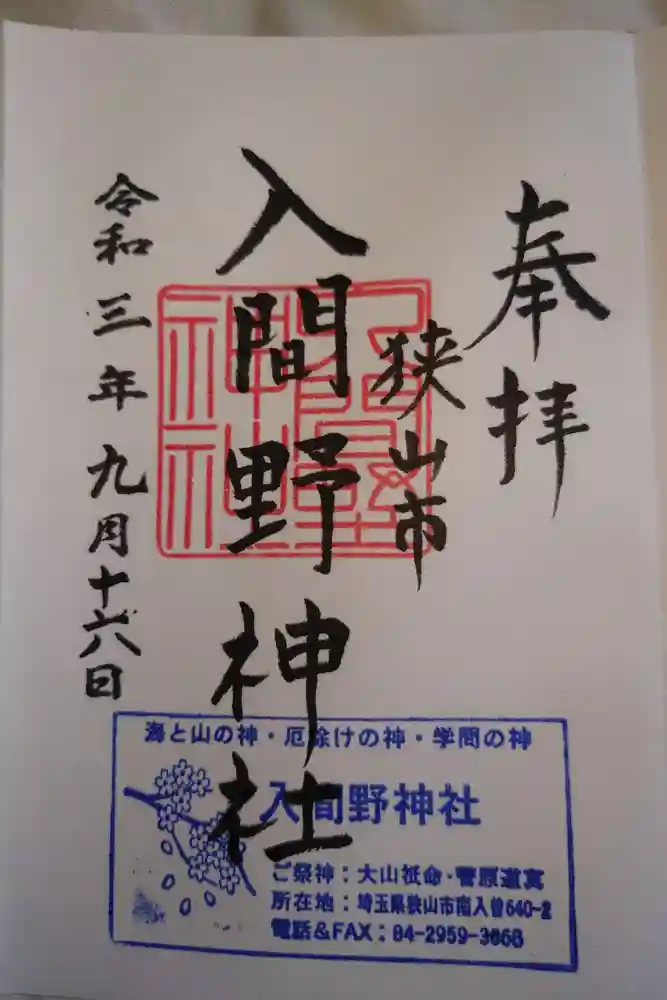 奉拝
狭山市
入間野神社
令和三年九月十六日
入間野神社
海と山の神・厄除けの神・学問の神
入間野神社
ご祭神：大山祇命・菅原道真
所在地：埼玉県狭山市南入曽640-2
電話&FAX：04-2959-3668